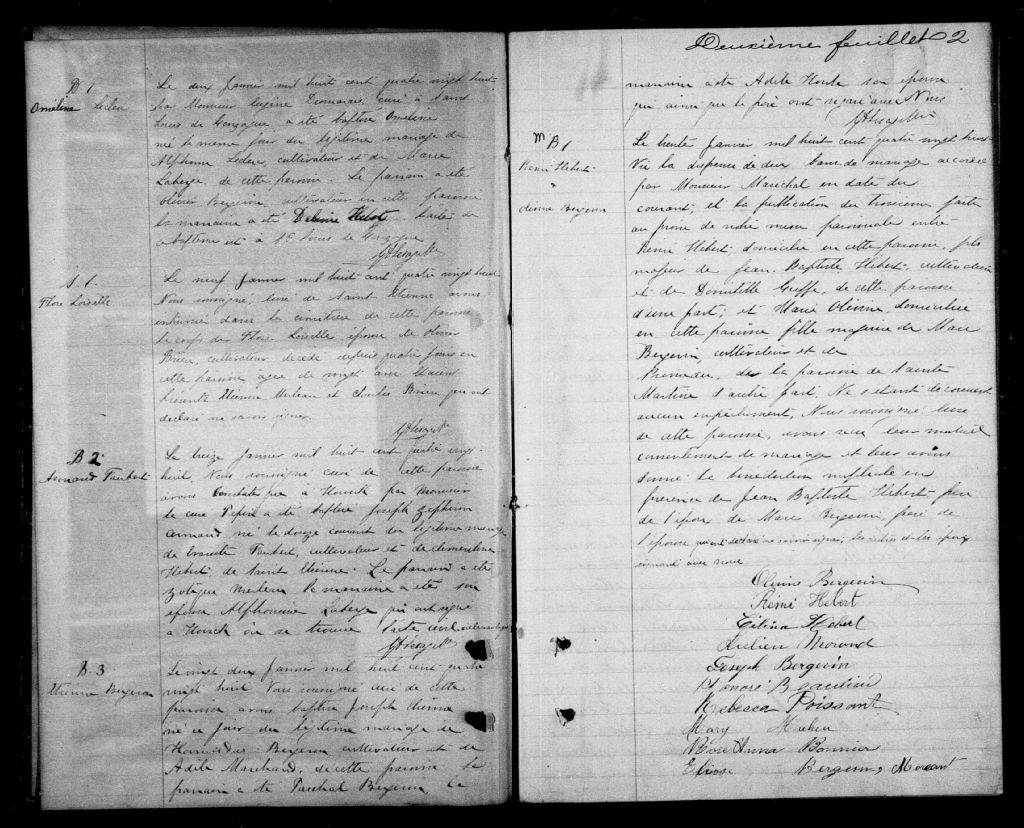 B. 1
Omeline Leclerc
Le deux Janvier mil huit cent quatre vingt huit
par Monsieur Eugène curé de Saint
Louis de Gonzague a été baptisé Omeline
née le même jour du légitime mariage de
Alphonse Leclerc cultivateur et de Marie
Laberge de cette paroisse. Le parrain a été
Olivier Bergevin, cultivateur en cette paroisse
la marraine a été Hebert L'acte de
baptême est à St Louis de Gonzague
S. 1
Flore Loiselle
Le neuf Janvier mil huit cent quatre vingt huit
Nous soussigné, curé de Saint Etienne avons
inhumé dans le cimetière de cette paroisse
le corps de Flore Loiselle épouse de Olivier
Brière, cultivateur décédée depuis quatre jours en
cette paroisse agée de vingt ans Etaient
présents Etienne et Charles Brière qui ont
déclaré ne savoir signer.
B 2
Armand Faubert
Le treize Janvier mil huit cent quatre vingt
huit, Nous soussigné curé de cette paroisse
avons constaté que à Howick par Monsieur
le curé Pepin a été baptisé Joseph Zephirin
Armand né le douze courant du légitime mariage
de Faubert, cultivateur et de Clementine
Hebert de Saint Etienne. Le parrain a été
Zotique La marraine a été son
épouse Alphonsine Laberge qui ont signé
à Howick où se trouve l'acte
B. 3
Etienne Bergevin
Le vingt deux Janvier mil huit cent quatre
vingt huit Nous soussigné curé de cette
paroisse avons baptisé Joseph Etienne
né ce jour du légitime mariage de
Bergevin cultivateur et de
Adèle Marchand, de cette paroisse Le
parrain a été Paschal Bergevin, la
Deuxième feuillet 2
marraine a été Adèle Houle son épouse
qui ainsi que le père ont signé avec Nous
M B 1
Rémi Hebert
"
Olivine Bergevin
Le trente Janvier mil huit cent quatre vingt huit
Vu la dispense de deux bans de mariage accordée
par Monsieur Maréchal en date du
courant, et la publication du troisième faite
au prône de notre messe paroissiale entre
Rémi Hébert, domicilié en cette paroisse, fils
majeur de Jean Baptiste Hebert, cultivateur
et de Domitille Greffe, de cette paroisse
d'une part; et Marie Olivine, domiciliée
en cette paroisse, fille majeure de Marc
Bergevin, cultivateur et de
Primeau, de la paroisse de Sainte
Martine d'autre part, Ne s'étant découvert
aucun empêchement, Nous soussigné, curé
de cette paroisse, avons reçu leur mutuel
consentement de mariage et leur avons
donné la bénédiction nuptiale en
présence de Jean Baptiste Hebert père
de l'époux de Marc Bergevin, père de
l'épouse qui ont déclaré ne savoir signer, les et les époux
signant avec nous
Olivine Bergevin
Rémi Hebert
Célina Hebert
Julien Morand
Joseph Bergevin
Honoré Beaulieu
Rebecca Poissant
Mary Maheu
Rose Anna Bonnier
Elise Bergevin